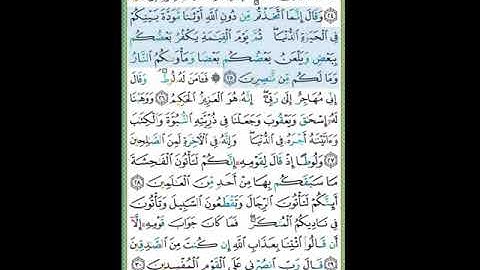 وَقَالَ إِنَّمَا ٱتَّخَذْتُم مِّن دُونِ ٱللَّهِ أَوْثَٰنًا مَّوَدَّةَ بَيْنِكُمْ
فِى ٱلْحَيَوٰةِ ٱلدُّنْيَا ۖ ثُمَّ يَوْمَ ٱلْقِيَٰمَةِ يَكْفُرُ بَعْضُكُم
بِبَعْضٍ وَيَلْعَنُ بَعْضُكُم بَعْضًا وَمَأْوَىٰكُمُ ٱلنَّارُ
وَمَا لَكُم مِّن نَّٰصِرِينَ ۝٢٥ ۞ فَـَٔامَنَ لَهُۥ لُوطٌ ۘ وَقَالَ
إِنِّى مُهَاجِرٌ إِلَىٰ رَبِّىٓ ۖ إِنَّهُۥ هُوَ ٱلْعَزِيزُ ٱلْحَكِيمُ ۝٢٦ وَوَهَبْنَا
لَهُۥٓ إِسْحَٰقَ وَيَعْقُوبَ وَجَعَلْنَا فِى ذُرِّيَّتِهِ ٱلنُّبُوَّةَ وَٱلْكِتَٰبَ
وَءَاتَيْنَٰهُ أَجْرَهُۥ فِى ٱلدُّنْيَا ۖ وَإِنَّهُۥ فِى ٱلْـَٔاخِرَةِ لَمِنَ ٱلصَّٰلِحِينَ
۝٢٧ وَلُوطًا إِذْ قَالَ لِقَوْمِهِۦٓ إِنَّكُمْ لَتَأْتُونَ ٱلْفَٰحِشَةَ
مَا سَبَقَكُم بِهَا مِنْ أَحَدٍ مِّنَ ٱلْعَٰلَمِينَ ۝٢٨
أَئِنَّكُمْ لَتَأْتُونَ ٱلرِّجَالَ وَتَقْطَعُونَ ٱلسَّبِيلَ وَتَأْتُونَ
فِى نَادِيكُمُ ٱلْمُنكَرَ ۖ فَمَا كَانَ جَوَابَ قَوْمِهِۦٓ إِلَّآ
أَن قَالُوا۟ ٱئْتِنَا بِعَذَابِ ٱللَّهِ إِن كُنتَ مِنَ ٱلصَّٰدِقِينَ
۝٢٩ قَالَ رَبِّ ٱنصُرْنِى عَلَى ٱلْقَوْمِ ٱلْمُفْسِدِينَ ۝٣٠